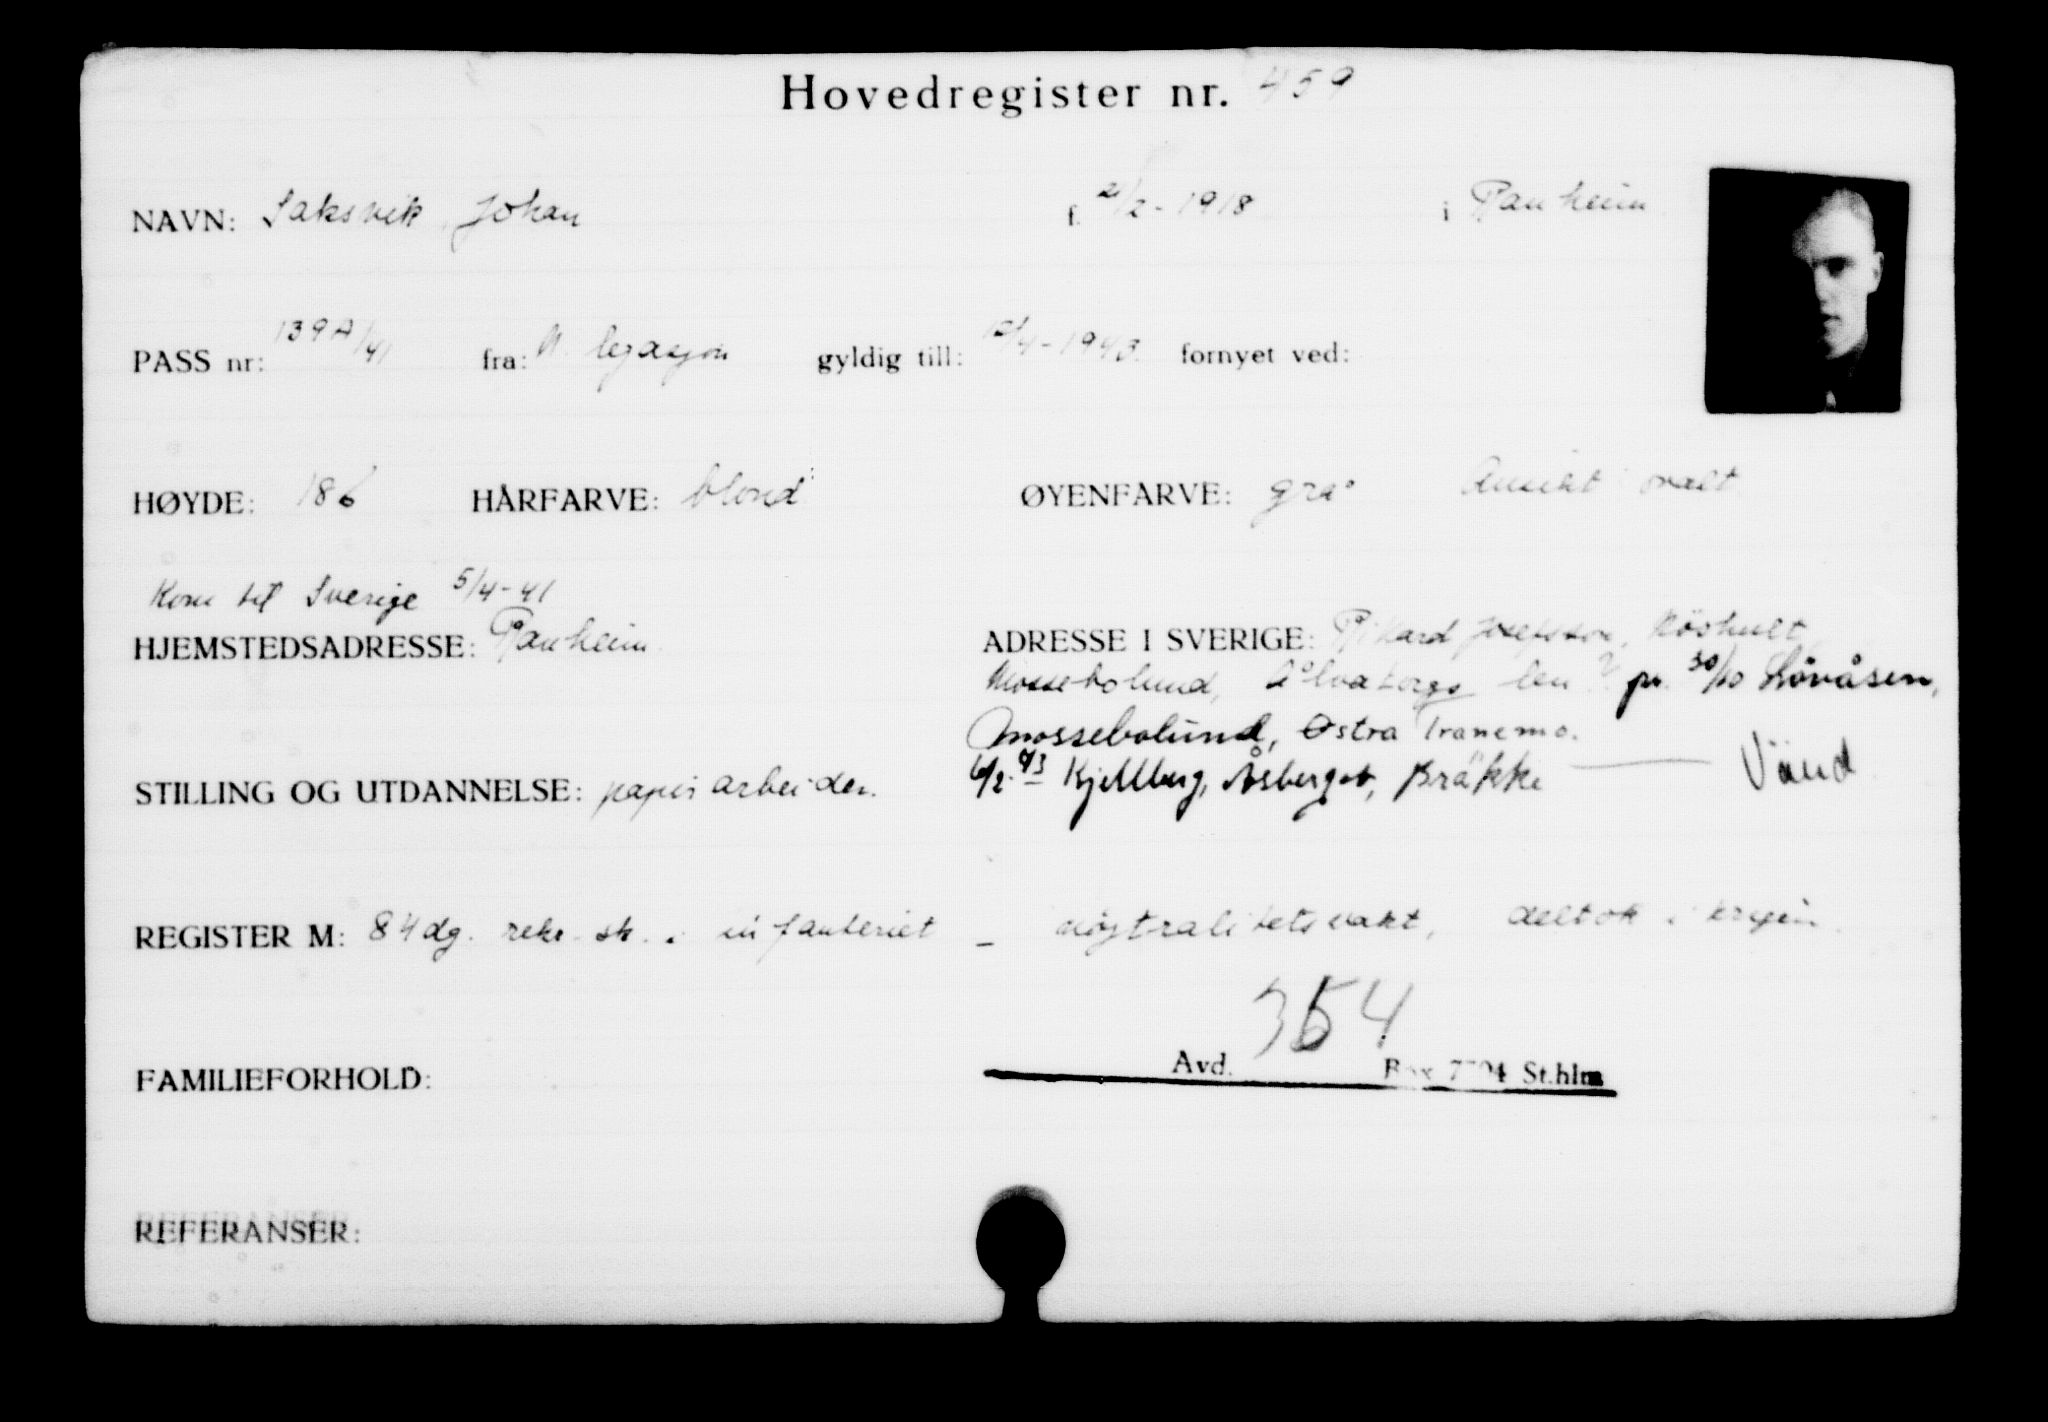 Hovedregister nr. 459
NAVN: Saksvik, Johan f. 21/2-1918 i Ranheim
PASS nr: 139A/41 fra: N. legasjon gyldig till: 12/4-1943 fornyet ved:
HØYDE: 186 HÅRFARVE: blond ØYENFARVE: grå Ansikt ovalt
Kom til Sverige 5/4-41
HJEMSTEDSADRESSE: Ranheim ADRESSE I SVERIGE: Rikard Josefsson,
Mossebolund, Älvsborgs len pr. 30/10 Lövåsen,
Mossebolund, Østra Tranemo.
6/2-43 Kjellberg, Åsberget, Bräkke Vänd
STILLING OG UTDANNELSE: papirarbeider.
REGISTER M: 84 dg. rekr. sk. i infanteriet - nøytralitetsvakt, deltok i krigen.
354
FAMILIEFORHOLD: Avd. Box St.hlm
REFERANSER: